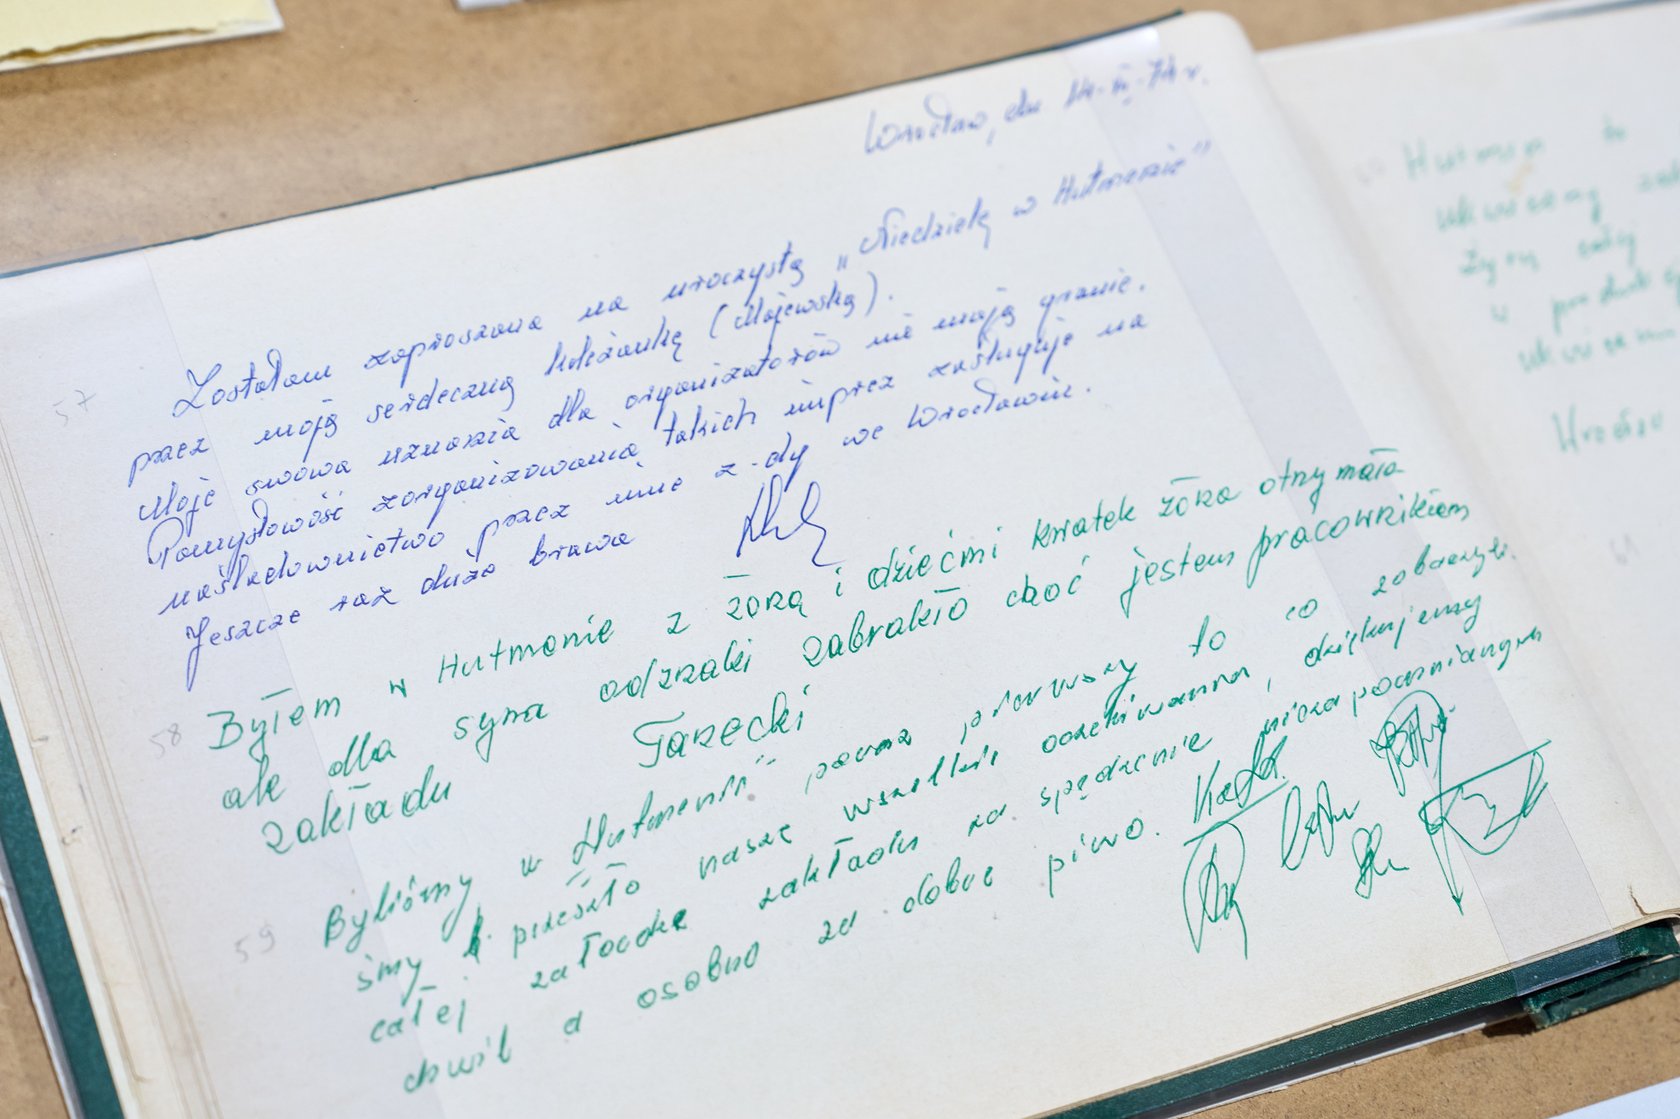 Wrocław, dn 14-IV-74 r.
57
Zostałam zaproszona na uroczystą „Niedzielę w Hutmenie"
przez moją serdeczną koleżankę (Majewską).
Moje słowa uznania dla organizatorów nie mają granic.
Pomysłowość zorganizowania takich imprez zasługuje na
naśladownictwo przez inne z-dy we Wrocławiu.
Jeszcze raz duże brawa
58
Byłem w Hutmenie z żoną i dziećmi kwiatek żona otrzymała
ale dla syna odznaki zabrakło choć jestem pracownikiem
zakładu
59
Byliśmy w „Hutmenie" poraz pierwszy to co zobaczyli-
śmy przeszło nasze wszelkie oczekiwania, dziękujemy
całej załodze zakładu za spędzenie niezapomnianych
chwil a osobno za dobre piwo.
Hutmen to
ukwiecony
żyny całej
w
Wrocław
61